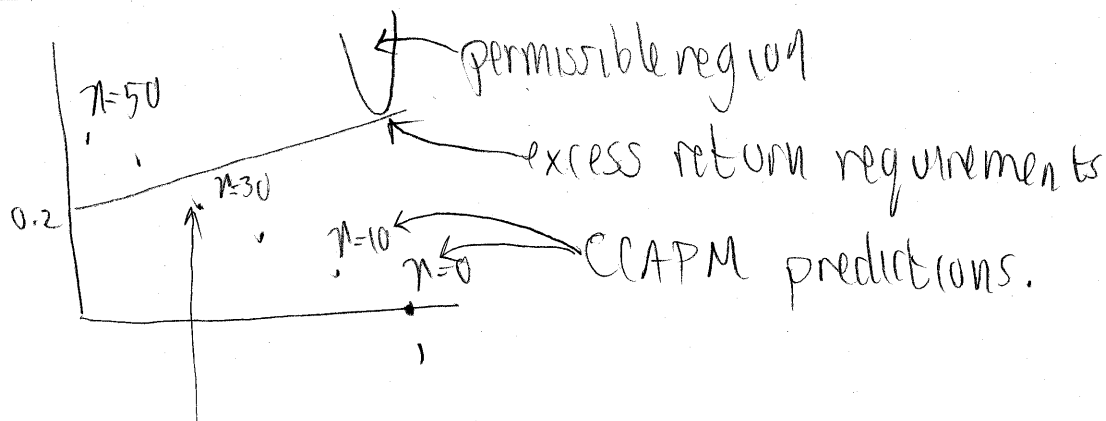 permissible region
n=50
excess return requirements
n=30
0.2
n=10
n=0
CCAPM predictions.
1